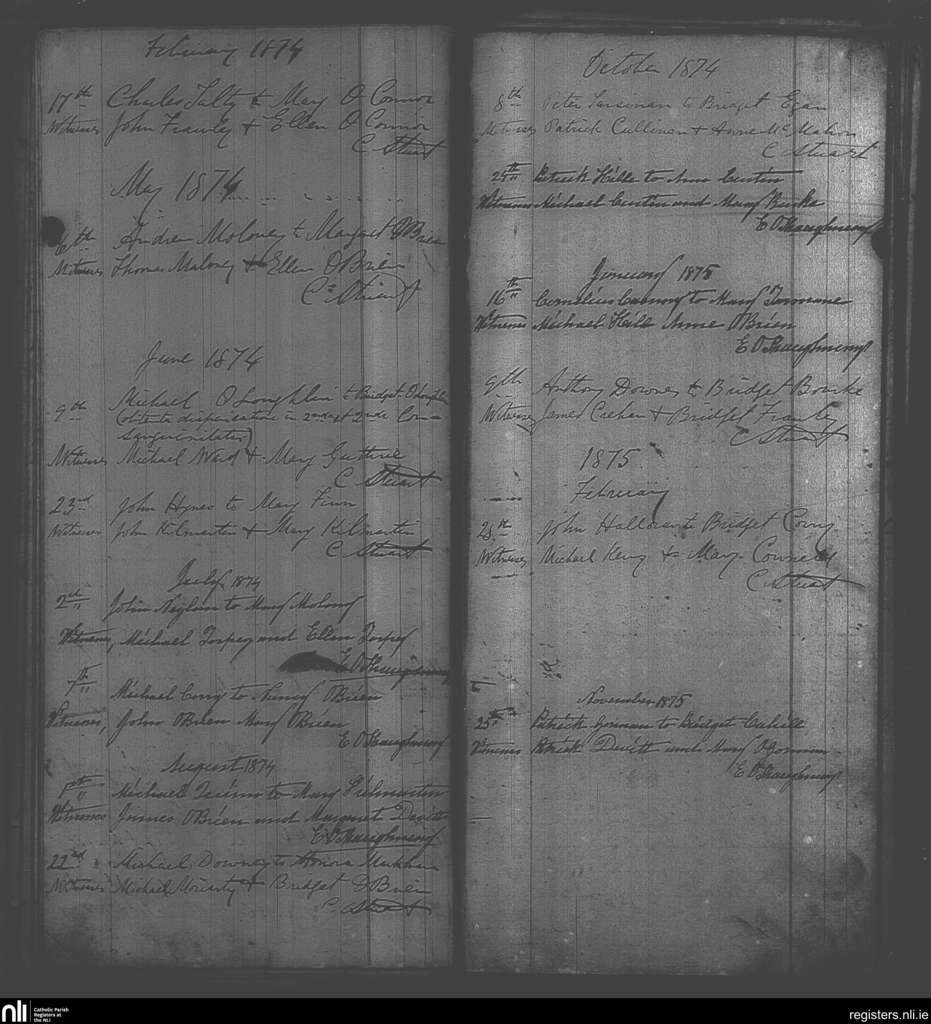 February 1874
17th Charles Talty & Mary O Connor
Witnesses John Frawley & Ellen O Connor
C Stuart
May 1874
6th Andrew Moloney to Margaret O'Brien
Witnesses Thomas Maloney & Ellen O'Brien
C. Stuart
June 1874
9th Michael O'Loughlin to Bridget O'Loughlin
dispensation in 2nd et 2nd Con
sanguinitatis)
Witnesses Michael Ward & Mary Guthrie
C Stuart
23rd John Hynes to Mary Finn
Witnesses John Kilmartin & Mary Kilmartin
C Stuart
July 1874
2nd John Neylon to Mary Molony
Witnesses, Michael Torpey and Ellen Torpey
E O'Shaughnessy
7th Michael Corry to O'Brien
Witnesses, John O'Brien Mary O'Brien
E O'Shaughnessy
August 1874
Michael to Mary Kilmartin
Witnesses James O'Brien and Margaret Devitt
E O'Shaughnessy
22nd Michael Downey to Honora
Witnesses Michael Moriarty & Bridget O'Brien
C. Stuart
October 1874
8th Peter to Bridget Egan
Witnesses Patrick Cullinan & Anne McMahon
C Stuart
25th Patrick Hille to Ann Curtin
Witnesses Michael Curtin and Mary Burke
E O'Shaughnessy
January 1875
16th Cornelius to Mary
Witnesses Michael Anne O'Brien
E O'Shaughnessy
9th Anthony Downes & Bridget Bourke
Witnesses James & Bridget Frawley
C Stuart
1875
February
28th John Halloran to Bridget Corry
Witnesses Michael Keny & Mary
C Stuart
November 1875
25th Patrick Gorman to Bridget Cahill
Witnesses Patrick Devitt and Mary
E O'Shaughnessy
nli
Catholic Parish
Registers at
the NLI
registers.nli.ie